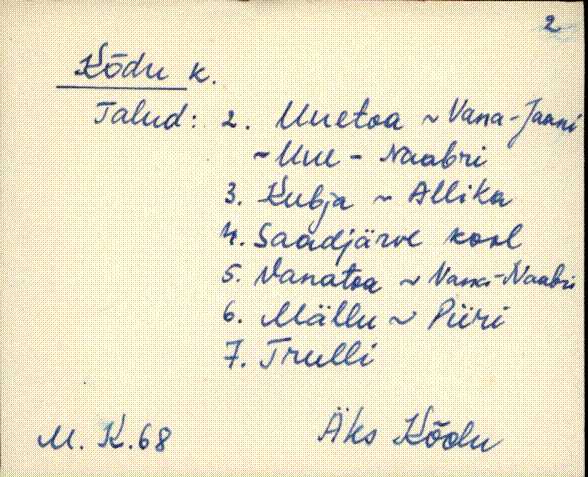 2
Kõdu k.
Talud: 2. Uuetoa ~ Vana-Jaani
~ Uue - Naabri
3. Kubja ~ Allika
4. Saadjärve kool
5. Vanatoa ~ Vana-Naabri
6. Mällu ~ Piiri
7. Trulli
M. K. 68 Äks Kõdu